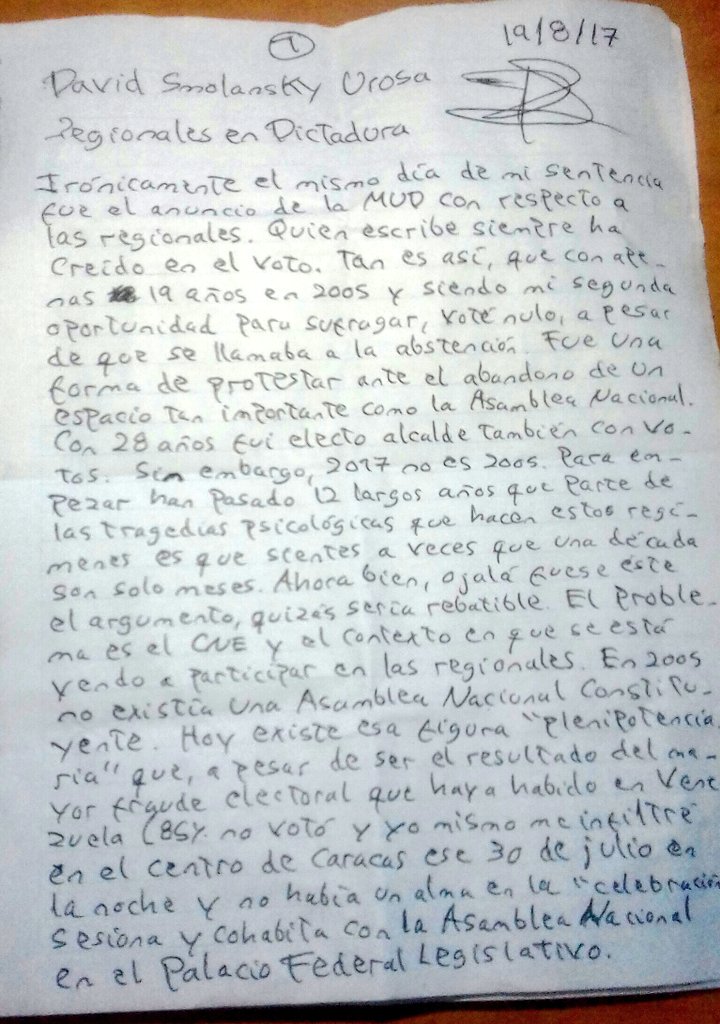 1
19/8/17
David Smolansky Urosa
Regionales en Dictadura
Irónicamente el mismo día de mi sentencia
fue el anuncio de la MUD con respecto a
las regionales. Quien escribe siempre ha
creído en el voto. Tan es así, que con ape-
nas 19 años en 2005 y siendo mi segunda
oportunidad para sufragar, voté nulo, a pesar
de que se llamaba a la abstención. Fue una
forma de protestar ante el abandono de un
espacio tan importante como la Asamblea Nacional.
Con 28 años fui electo alcalde también con vo-
tos. Sin embargo, 2017 no es 2005. Para em-
pezar han pasado 12 largos años que parte de
las tragedias psicológicas que hacen estos regí-
menes es que sientes a veces que una década
son solo meses. Ahora bien, ojalá fuese éste
el argumento, quizás sería rebatible. El proble-
ma es el CNE y el contexto en que se está
yendo a participar en las regionales. En 2005
no existía una Asamblea Nacional Constitu-
yente. Hoy existe esa figura "plenipotencia
ria" que, a pesar de ser el resultado del ma-
yor fraude electoral que haya habido en Vene
zuela (85% no votó y yo mismo me infiltré
en el centro de Caracas ese 30 de julio en
la noche y no había un alma en la "celebración
sesiona y cohabita con la Asamblea Nacional
en el Palacio Federal Legislativo.